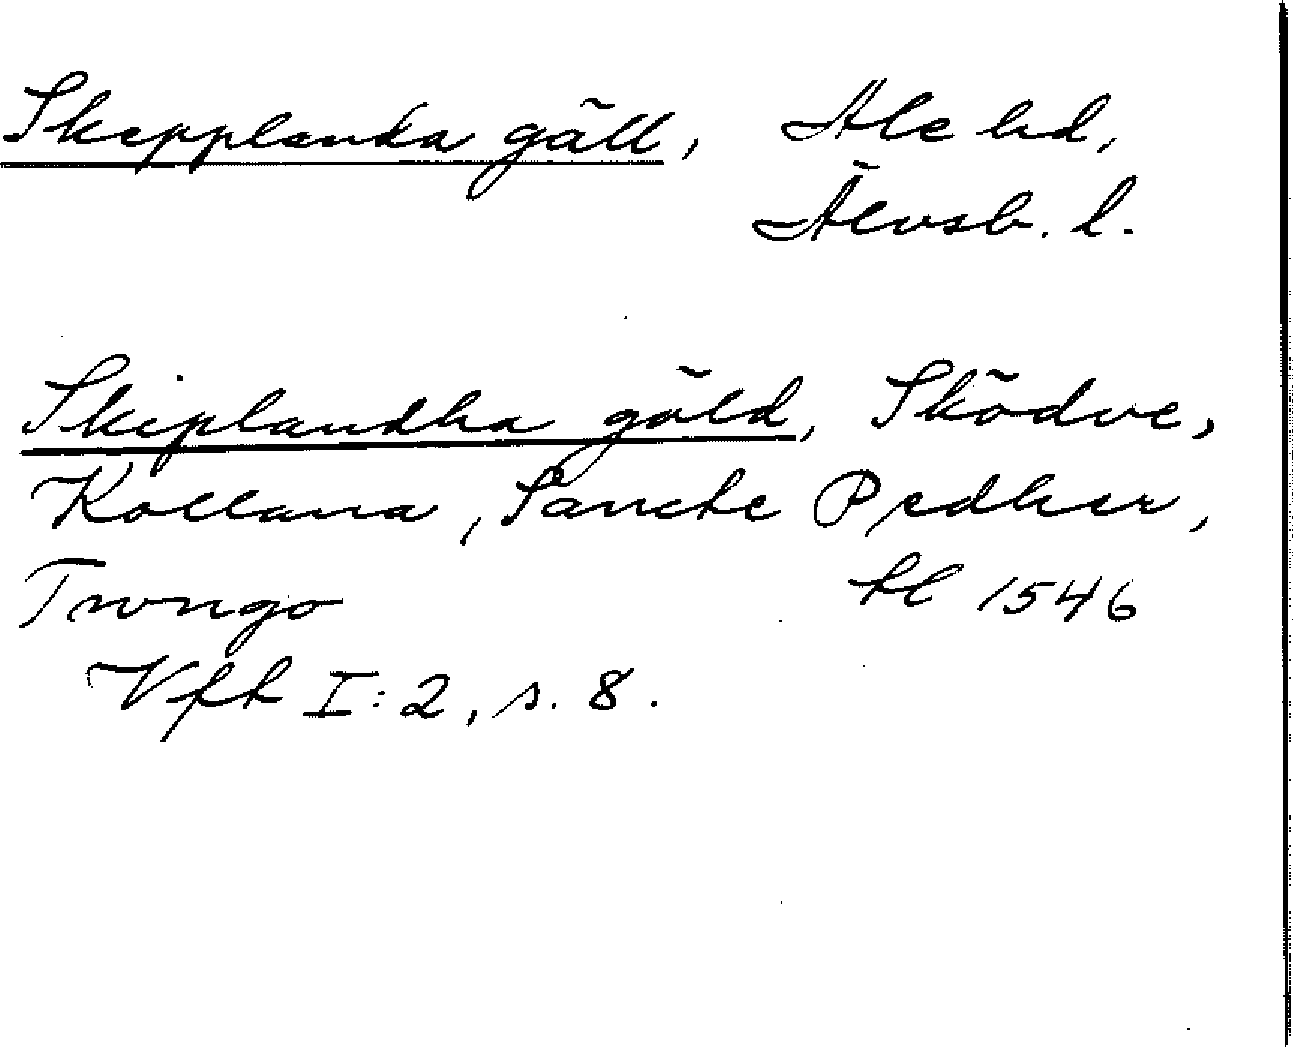 Skepplanda gäll, Ale hd,
Älvsb. l.
Skiplandha gäld, Sködve,
Kollana, Sancte Pedher,
Twngo hl 1546
Vfh I:2, s. 8.